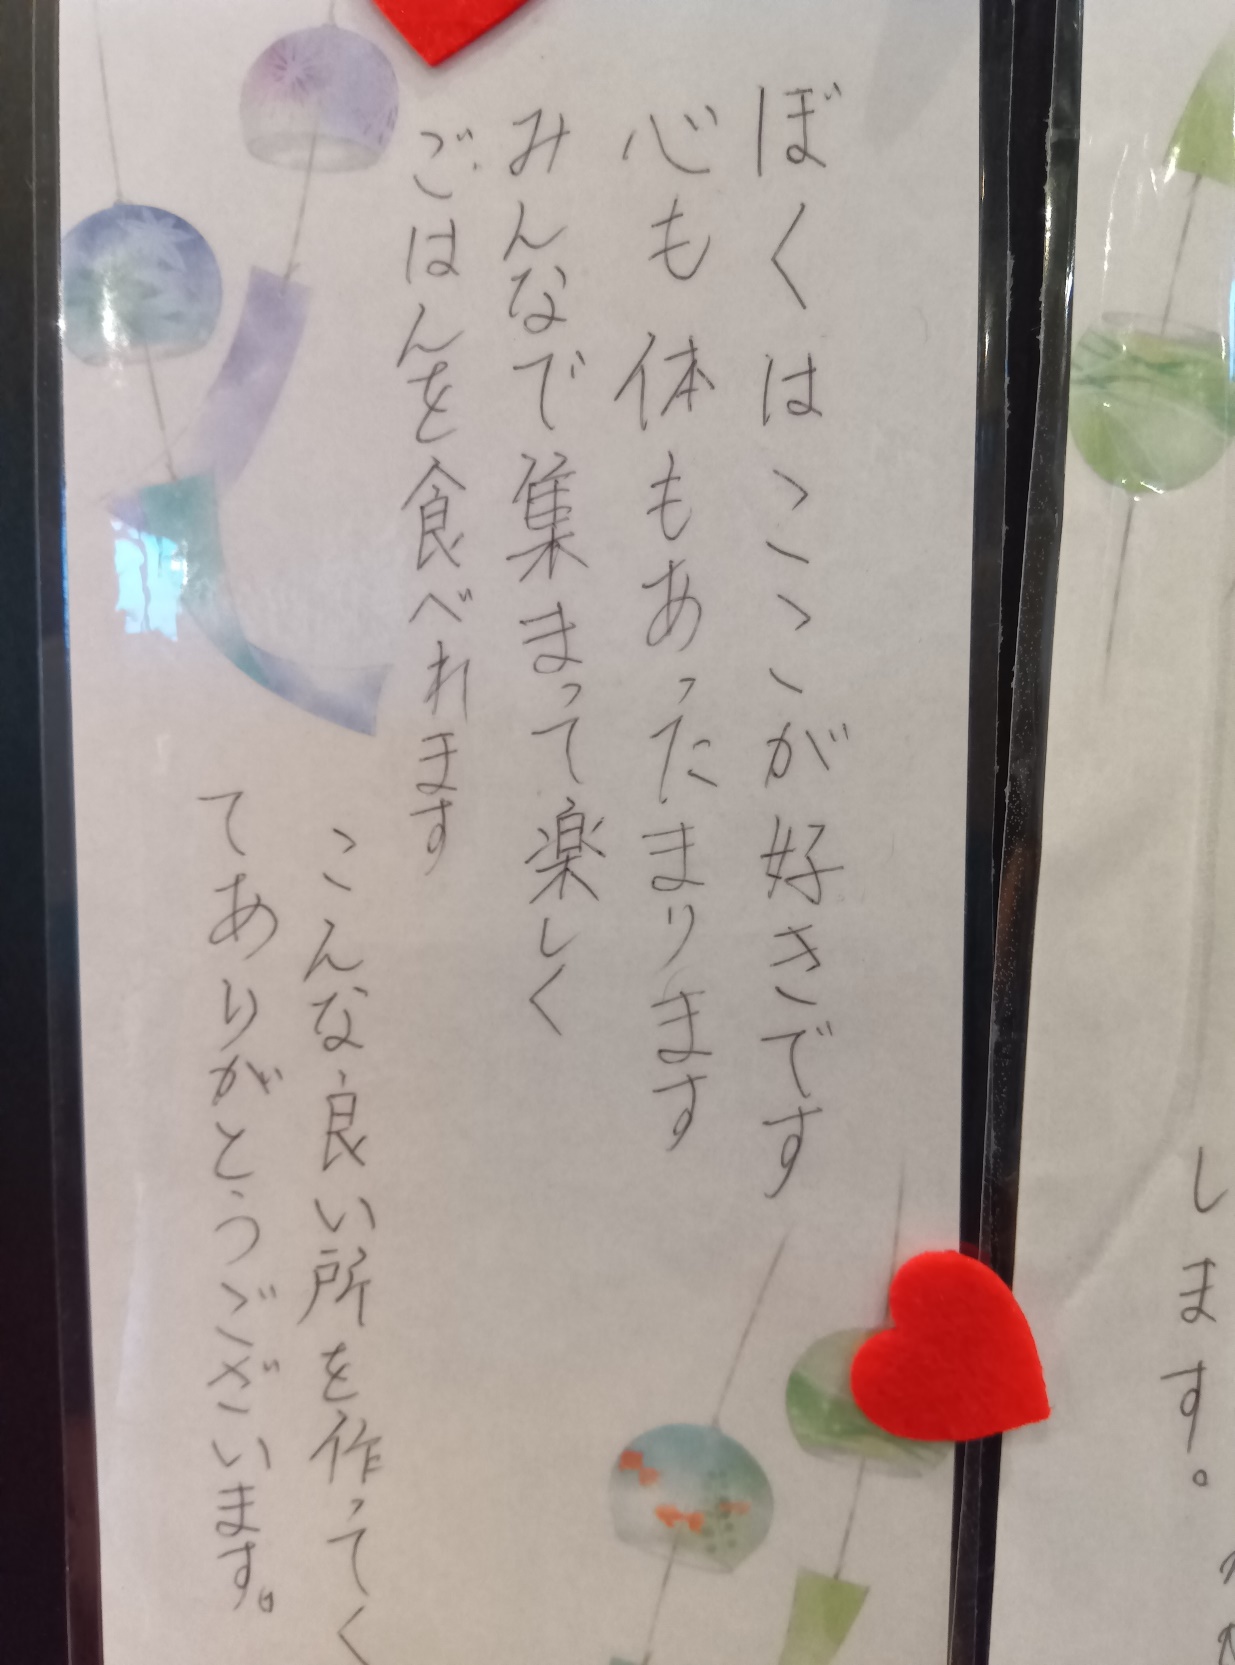 ぼくはここが好きです
心も体もあったまります
みんなで集まって楽しく
ごはんを食べれます
こんな良い所を作ってく
てありがとうございます。
します。